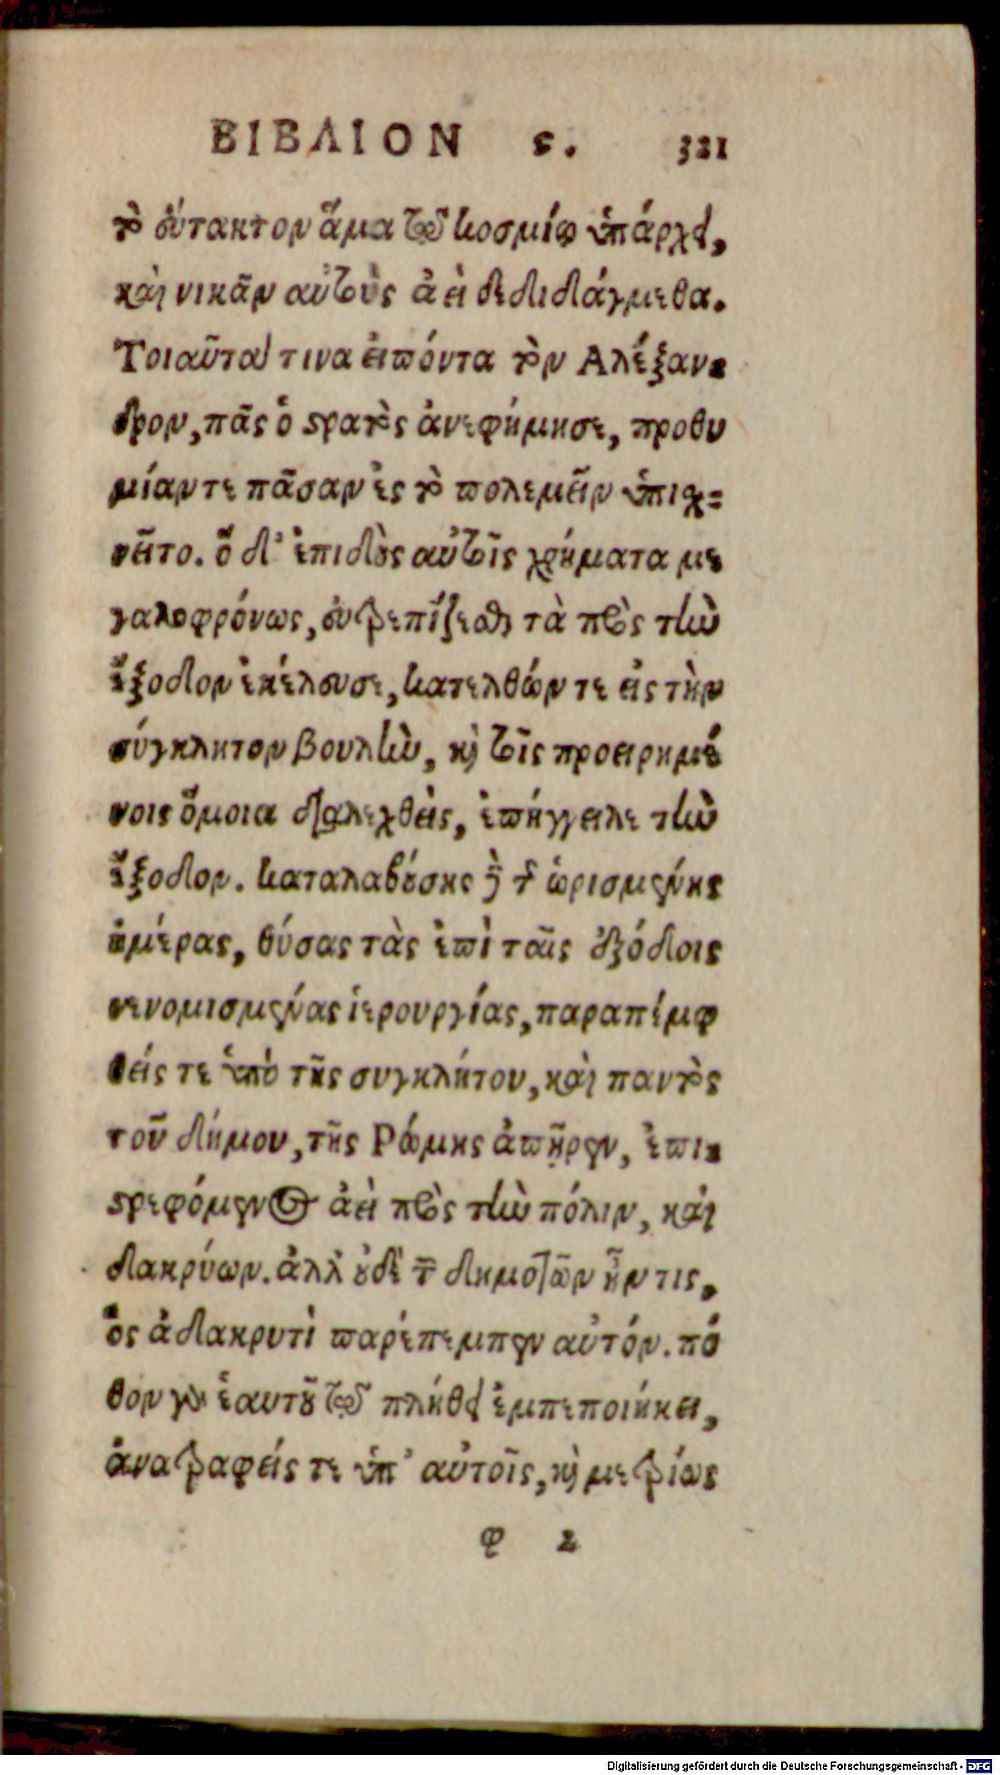 ΒΙΒΛΙΟΝ ϛ. 321
τὸ εὔτακτον ἅμα τῷ κοσμίῳ ὑπάρχει,
καὶ νικᾶν αὐτοὺς ἀεὶ δεδιδάγμεθα.
Τοιαῦτά τινα εἰπόντα τὸν Αλέξαν-
δρον, πᾶς ὁ στρατὸς ἀνεφήμησε, προθυ
μίαν τε πᾶσαν ἐς τὸ πολεμεῖν ὑπισχ-
νεῖτο. ὅ δ' ἐπιδοὺς αὐτοῖς χρήματα με
γαλοφρόνως, εὐτρεπίζεσθαι τὰ πρὸς τὴν
ἔξοδον ἐκέλευσε, κατελθών τε εἰς τὴν
σύγκλητον βουλὴν, καὶ τοῖς προειρημέ
νοις ὅμοια διαλεχθεὶς, ἐπήγγειλε τὴν
ἔξοδον. καταλαβούσης δὲ τῆς ὡρισμένης
ἡμέρας, θύσας τὰς ἐπὶ ταῖς ἐξόδοις
νενομισμένας ἱερουργίας, παραπεμφ
θείς τε ὑπὸ τῆς συγκλήτου, καὶ παντὸς
τοῦ δήμου, τῆς Ρώμης ἀπῆρεν, ἐπι-
στρεφόμενος ἀεὶ πρὸς τὴν πόλιν, καὶ
δακρύων. ἀλλ' οὐδὲ τῶν δημοτῶν ἦν τις,
ὃς ἀδακρυτὶ παρέπεμπεν αὐτόν. πό
θον γὰρ ἑαυτοῦ τῷ πλήθει ἐμπεποιήκει,
ἀνατραφείς τε ὑπ' αὐτοῖς, καὶ μετρίως
φ 2
Digitalisierung gefördert durch die Deutsche Forschungsgemeinschaft - DFG